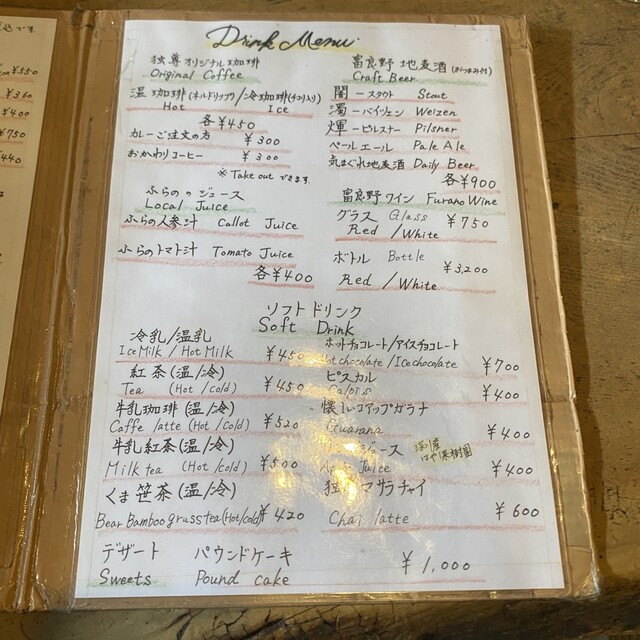 Drink Menu
¥550
¥400
¥750
¥440
独尊オリジナル珈琲
Original Coffee
温珈琲(ネルドリップ)/冷珈琲(チコリ入り)
Hot Ice
各¥450
カレーご注文の方 ¥300
おかわりコーヒー ¥300
※Take out できます。
ふらののジュース
Local Juice
ふらの人参汁 Callot Juice
ふらのトマト汁 Tomato Juice
各¥400
富良野 地麦酒(おつまみ付)
Craft Beer
闇-スタウト Stout
濁-バイツェン Weizen
煇-ピルスナー Pilsner
ペールエール Pale Ale
気まぐれ地麦酒 Daily Beer
各¥900
富良野ワイン Furano Wine
グラス Glass ¥750
Red / White
ボトル Bottle ¥3,200
Red / White
ソフトドリンク
Soft Drink
冷乳/温乳
Ice Milk / Hot Milk ¥450
紅茶(温/冷)
Tea (Hot/cold) ¥450
牛乳珈琲(温/冷)
Caffe latte (Hot/cold) ¥520
牛乳紅茶(温/冷)
Milk tea (Hot/cold) ¥500
くま笹茶(温/冷)
Bear Bamboo grass tea (Hot/cold) ¥420
ホットチョコレート/アイスチョコレート
Hot chocolate / Ice chocolate ¥700
ピスカル
Calpis ¥400
懐しいコアップガラナ
Guarana ¥400
ジュース
Juice ¥400
マサラチャイ
Chai latte ¥600
デザート パウンドケーキ
Sweets Pound cake ¥1,000